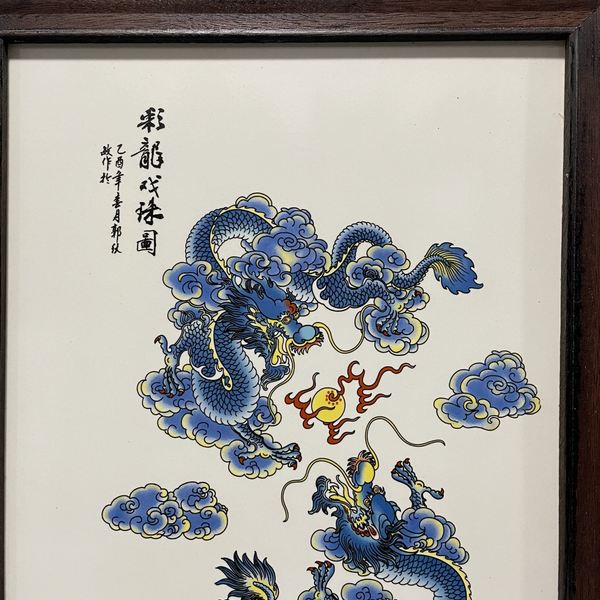 彩龍戏珠圖
乙酉年春月郭纹
政作於